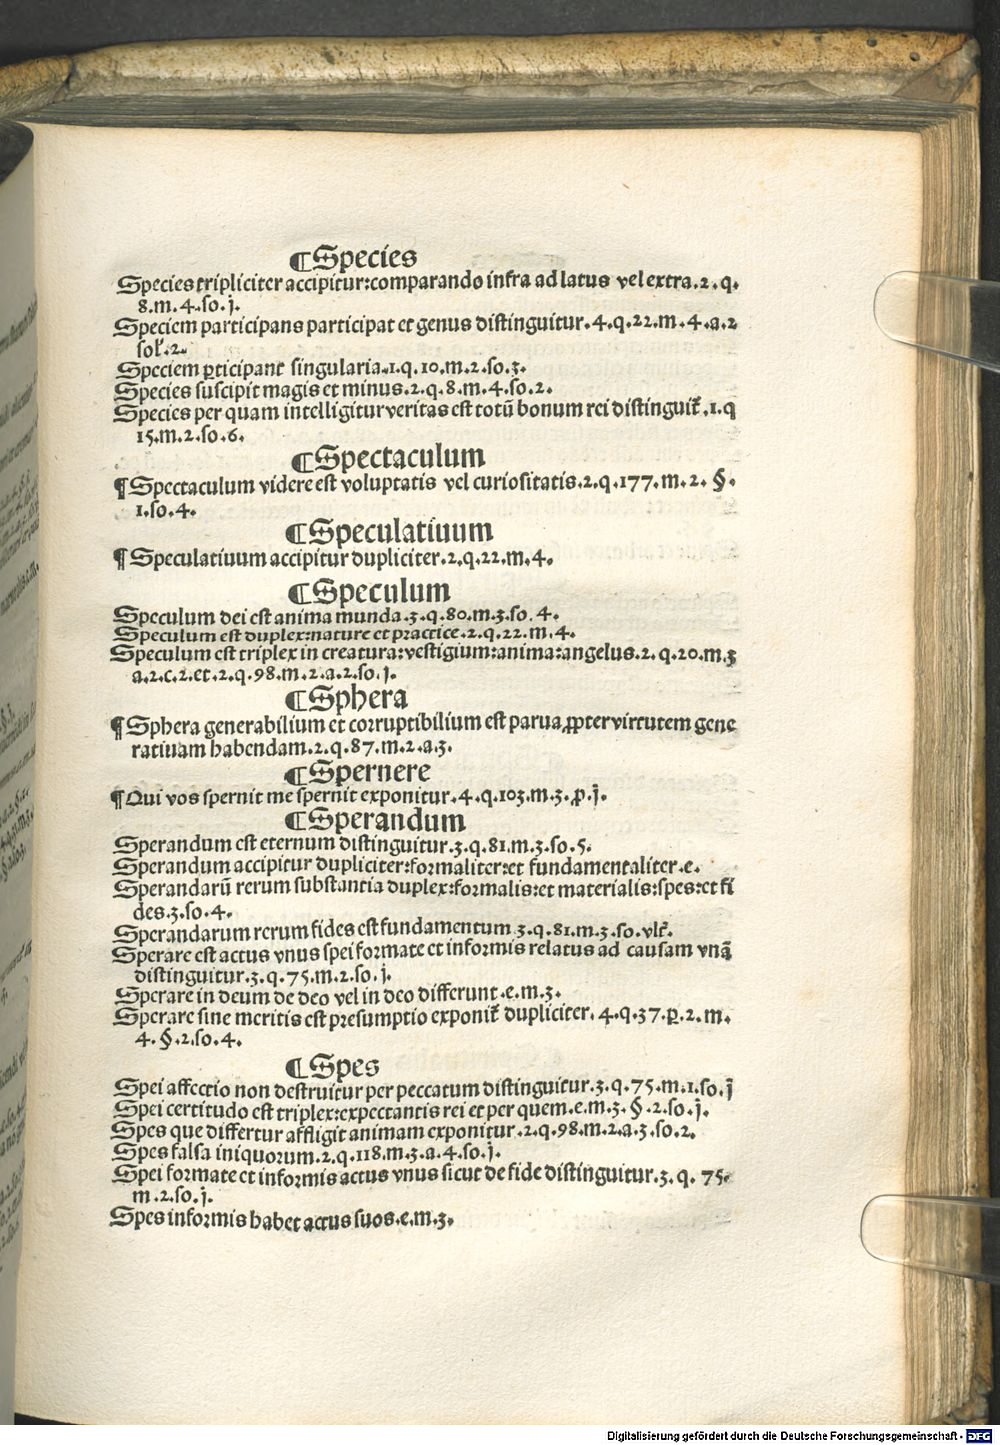 ¶Species
Species tripliciter accipitur:comparando infra ad latus vel extra.2.q.
8.m.4.so.j.
Speciem participans participat et genus distinguitur.4.q.22.m.4.a.2
sol̕.2.
Speciem ꝑticipant singularia.1.q.10.m.2.so.3.
Species suscipit magis et minus.2.q.8.m.4.so.2.
Species per quam intelligitur veritas est totũ bonum rei distinguit̃.1.q
15.m.2.so.6.
¶Spectaculum
¶Spectaculum videre est voluptatis vel curiositatis.2.q.177.m.2.§.
1.so.4.
¶Speculatiuum
¶Speculatiuum accipitur dupliciter.2.q.22.m.4.
¶Speculum
Speculum dei est anima munda.3.q.80.m.3.so.4.
Speculum est duplex:nature et practice.2.q.22.m.4.
Speculum est triplex in creatura:vestigium:anima:angelus.2.q.20.m.3
a.2.c.2.et.2.q.98.m.2.a.2.so.j.
¶Sphera
¶Sphera generabilium et corruptibilium est parua ꝓpter virtutem gene
ratiuam habendam.2.q.87.m.2.a.3.
¶Spernere
¶Qui vos spernit me spernit exponitur.4.q.103.m.3.ꝓ.j.
¶Sperandum
Sperandum est eternum distinguitur.3.q.81.m.3.so.5.
Sperandum accipitur dupliciter:formaliter:et fundamentaliter.e.
Sperandarũ rerum substantia duplex:formalis:et materialis:spes:et fi
des.3.so.4.
Sperandarum rerum fides est fundamentum.3.q.81.m.3.so.vlt̃.
Sperare est actus vnus spei formate et informis relatus ad causam vnã
distinguitur.3.q.75.m.2.so.j.
Sperare in deum de deo vel in deo differunt.e.m.3.
Sperare sine meritis est presumptio exponit̃ dupliciter.4.q.37.ꝑ.2.m.
4.§.2.so.4.
¶Spes
Spei affectio non destruitur per peccatum distinguitur.3.q.75.m.1.so.j
Spei certitudo est triplex:expectantis rei et per quem.e.m.3.§.2.so.j.
Spes que differtur affligit animam exponitur.2.q.98.m.2.a.3.so.2.
Spes falsa iniquorum.2.q.118.m.3.a.4.so.j.
Spei formate et informis actus vnus sicut de fide distinguitur.3.q.75.
m.2.so.j.
Spes informis habet actus suos.e.m.3.
Digitalisierung gefördert durch die Deutsche Forschungsgemeinschaft - DFG